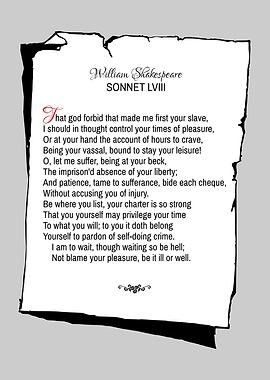 William Shakespeare
SONNET LVIII
That god forbid that made me first your slave,
I should in thought control your times of pleasure,
Or at your hand the account of hours to crave,
Being your vassal, bound to stay your leisure!
O, let me suffer, being at your beck,
The imprison'd absence of your liberty;
And patience, tame to sufferance, bide each cheque,
Without accusing you of injury.
Be where you list, your charter is so strong
That you yourself may privilege your time
To what you will; to you it doth belong
Yourself to pardon of self-doing crime.
I am to wait, though waiting so be hell;
Not blame your pleasure, be it ill or well.